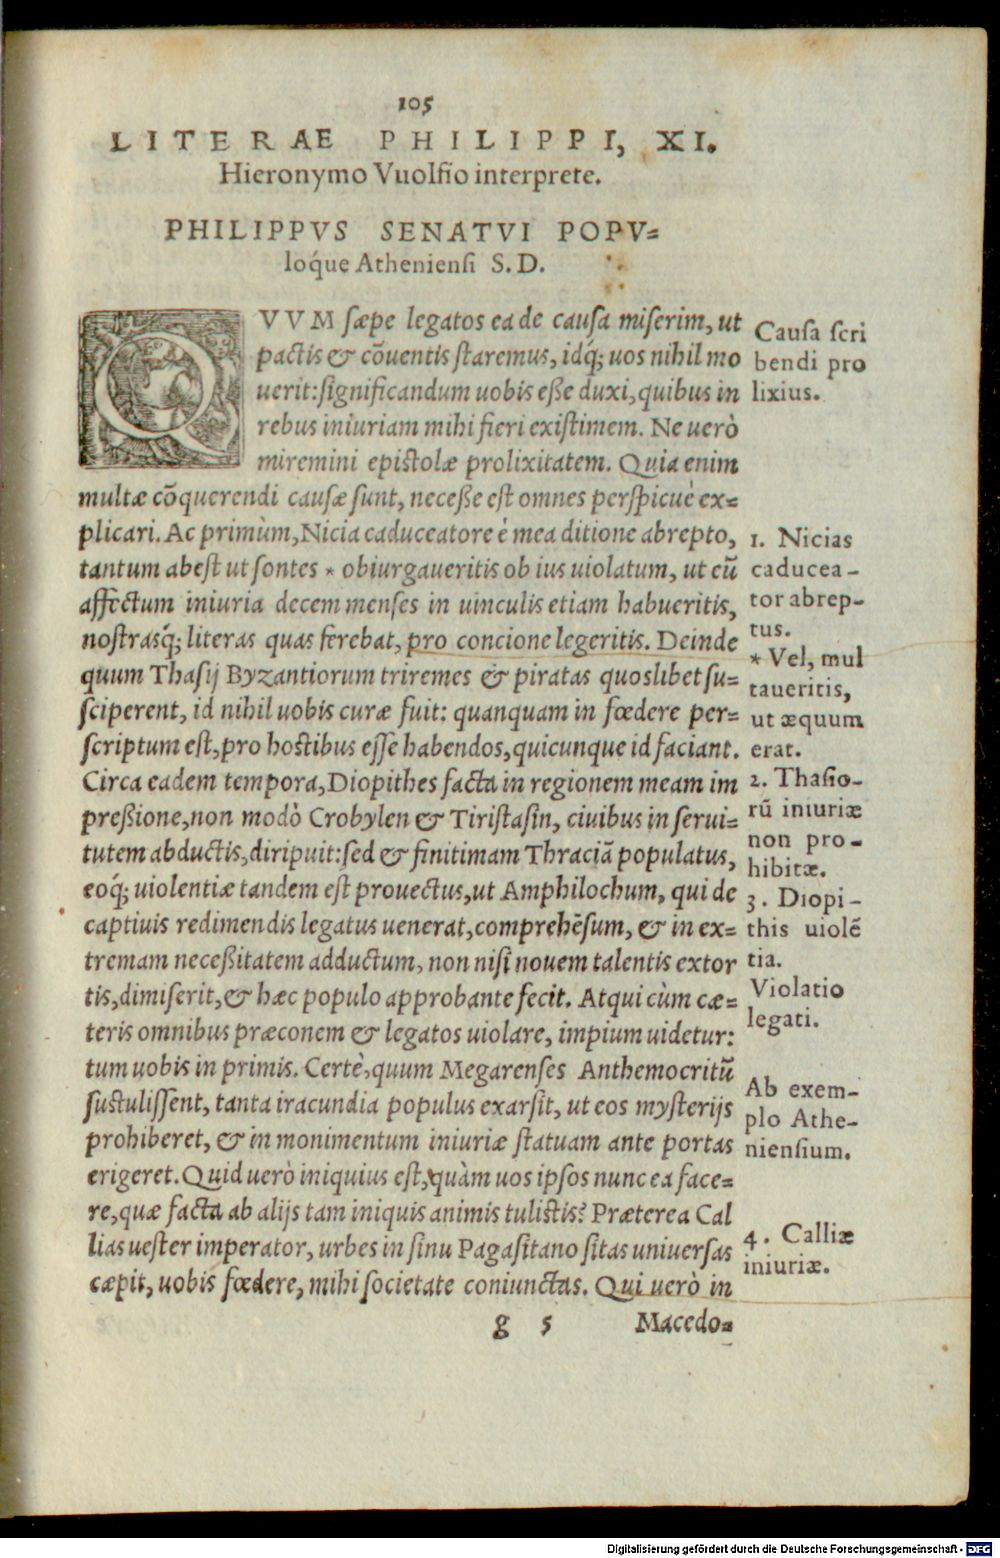 105
LITERAE PHILIPPI, XI.
Hieronymo Vuolfio interprete.
PHILIPPVS SENATVI POPV=
loq́ue Atheniensi S. D.
QVVM sæpe legatos ea de causa miserim, ut
pactis & cōuentis staremus, idq́; uos nihil mo
uerit: significandum uobis eße duxi, quibus in
rebus iniuriam mihi fieri existimem. Ne uerò
miremini epistolæ prolixitatem. Quia enim
multæ cōquerendi causæ sunt, neceße est omnes perspicuè ex=
plicari. Ac primùm, Nicia caduceatore è mea ditione abrepto,
tantum abest ut sontes * obiurgaueritis ob ius uiolatum, ut eū
affectum iniuria decem menses in uinculis etiam habueritis,
nostrasq́; literas quas ferebat, pro concione legeritis. Deinde
quum Thasij Byzantiorum triremes & piratas quoslibet su=
sciperent, id nihil uobis curæ fuit: quanquam in fœdere per=
scriptum est, pro hostibus esse habendos, quicunque id faciant.
Circa eadem tempora, Diopithes facta in regionem meam im
preßione, non modò Crobylen & Tiristasin, ciuibus in serui=
tutem abductis, diripuit: sed & finitimam Thraciā populatus,
eoq́; uiolentiæ tandem est prouectus, ut Amphilochum, qui de
captiuis redimendis legatus uenerat, comprehēsum, & in ex=
tremam neceßitatem adductum, non nisi nouem talentis extor
tis, dimiserit, & hæc populo approbante fecit. Atqui cùm cæ=
teris omnibus præconem & legatos uiolare, impium uidetur:
tum uobis in primis. Certè, quum Megarenses Anthemocritū
sustulissent, tanta iracundia populus exarsit, ut eos mysterijs
prohiberet, & in monimentum iniuriæ statuam ante portas
erigeret. Quid uerò iniquius est, quàm uos ipsos nunc ea face=
re, quæ facta ab alijs tam iniquis animis tulistis? Præterea Cal
lias uester imperator, urbes in sinu Pagasitano sitas uniuersas
cæpit, uobis fœdere, mihi societate coniunctas. Qui uerò in
g 5 Macedo=
Causa scri
bendi pro
lixius.
1. Nicias
caducea-
tor abrep-
tus.
* Vel, mul
taueritis,
ut æquum
erat.
2. Thasio-
rū iniuriæ
non pro-
hibitæ.
3. Diopi-
this uiolē
tia.
Violatio
legati.
Ab exem-
plo Athe-
niensium.
4. Calliæ
iniuriæ.
Digitalisierung gefördert durch die Deutsche Forschungsgemeinschaft - DFG